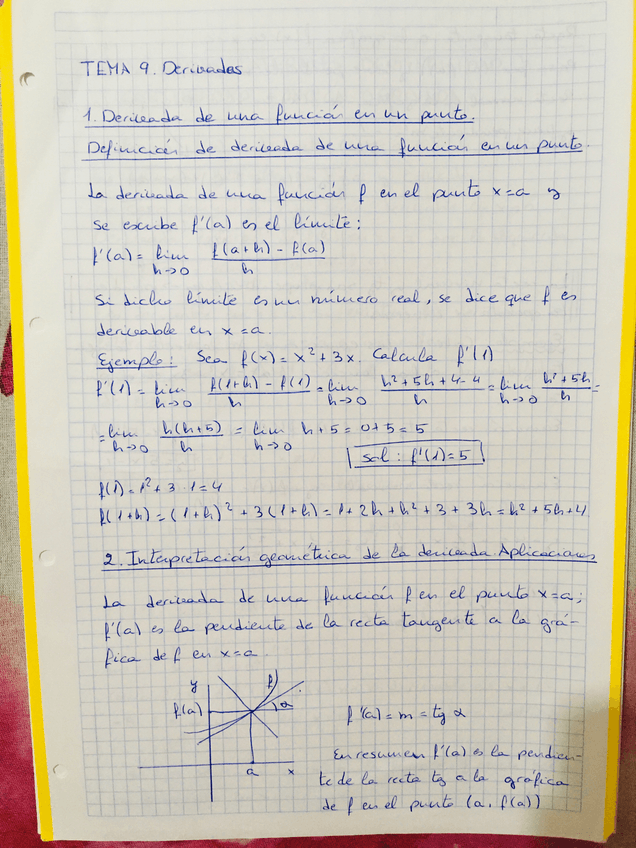 TEMA 9. Derivadas
1. Derivada de una función en un punto.
Definición de derivada de una función en un punto.
La derivada de una función f en el punto x=a y
se escribe f'(a) es el límite:
f'(a) = lim h→0 f(a+h) - f(a) / h
Si dicho límite es un número real, se dice que f es
derivable en x=a.
Ejemplo: Sea f(x) = x² + 3x. Calcula f'(1)
f'(1) = lim h→0 f(1+h) - f(1) / h = lim h→0 h² + 5h + 4 - 4 / h = lim h→0 h² + 5h / h =
= lim h→0 h(h+5) / h = lim h→0 h + 5 = 0 + 5 = 5
sol: f'(1) = 5
f(1) = 1² + 3·1 = 4
f(1+h) = (1+h)² + 3(1+h) = 1 + 2h + h² + 3 + 3h = h² + 5h + 4
2. Interpretación geométrica de la derivada. Aplicaciones
La derivada de una función f en el punto x=a;
f'(a) es la pendiente de la recta tangente a la grá-
fica de f en x=a.
y
f
f(a)
α
a
x
f'(a) = m = tg α
En resumen f'(a) es la pendien-
te de la recta tg a la gráfica
de f en el punto (a, f(a))